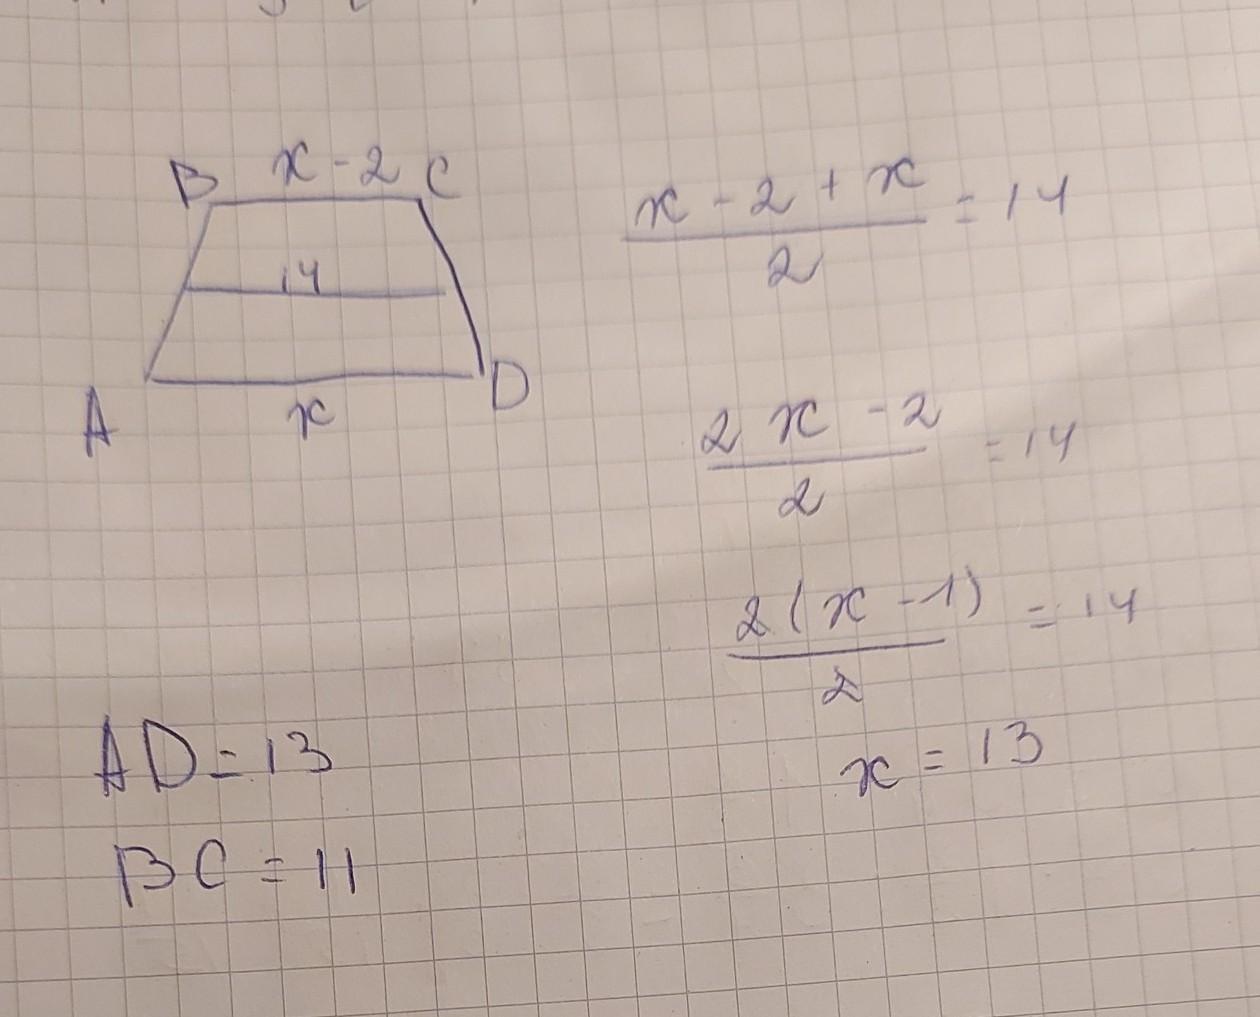 B x - 2 C
14
A x D
x - 2 + x / 2 = 14
2 x - 2 / 2 = 14
2 ( x - 1 ) / 2 = 14
x = 13
AD = 13
BC = 11